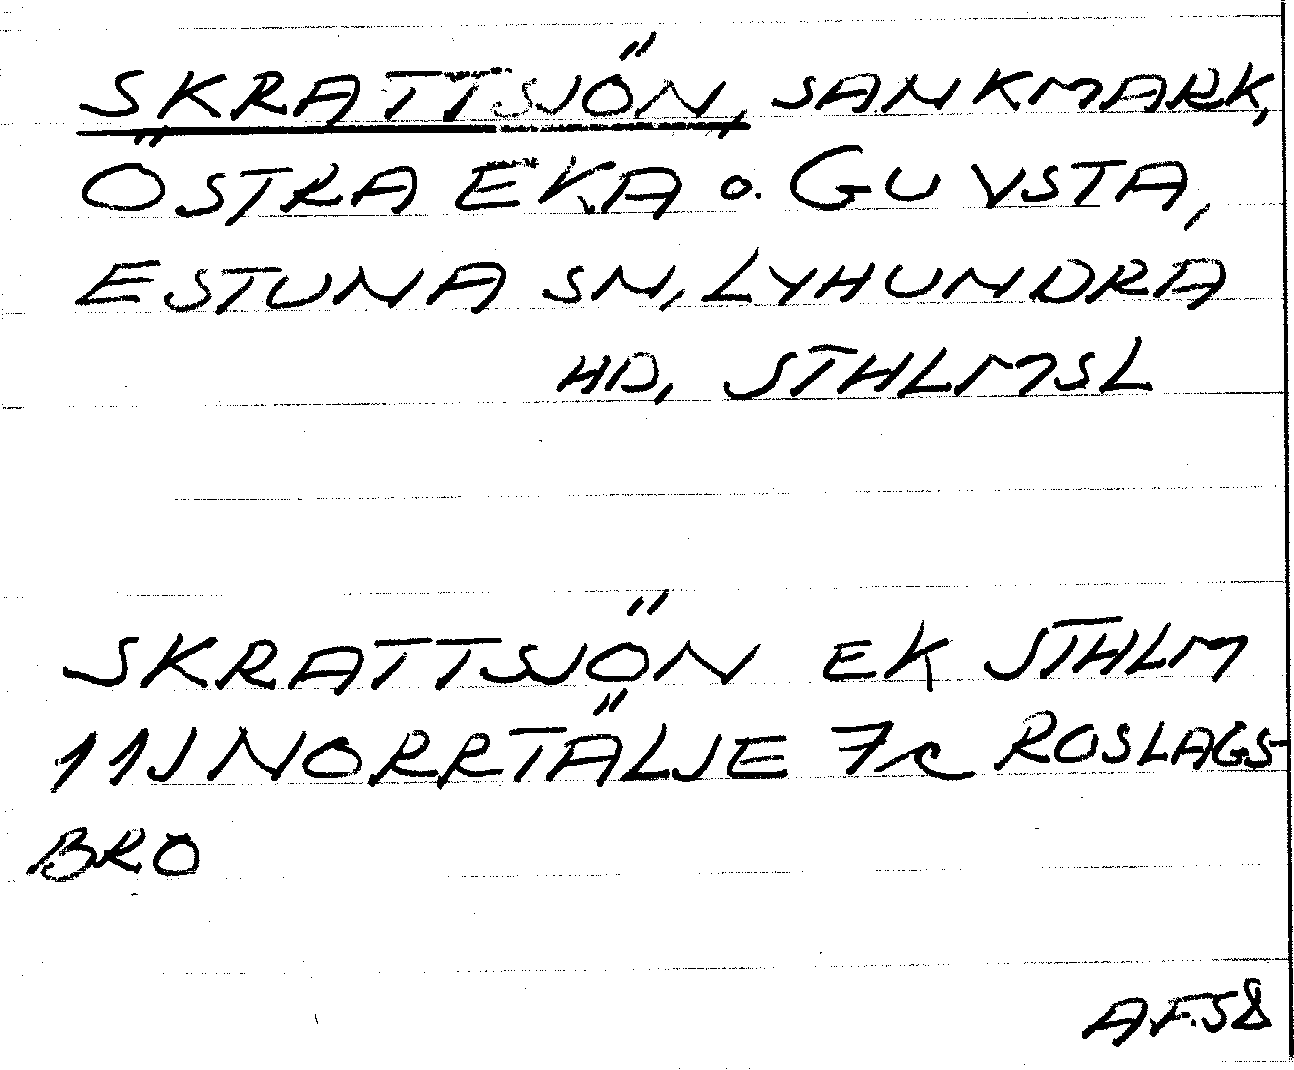 SKRATTSJÖN, SANKMARK,
ÖSTRA EKA o. GUVSTA,
ESTUNA SN, LYHUNDRA
HD, STHLMSL
SKRATTSJÖN EK STHLM
11J NORRTÄLJE 7c ROSLAGS-
BRO
A.F.58